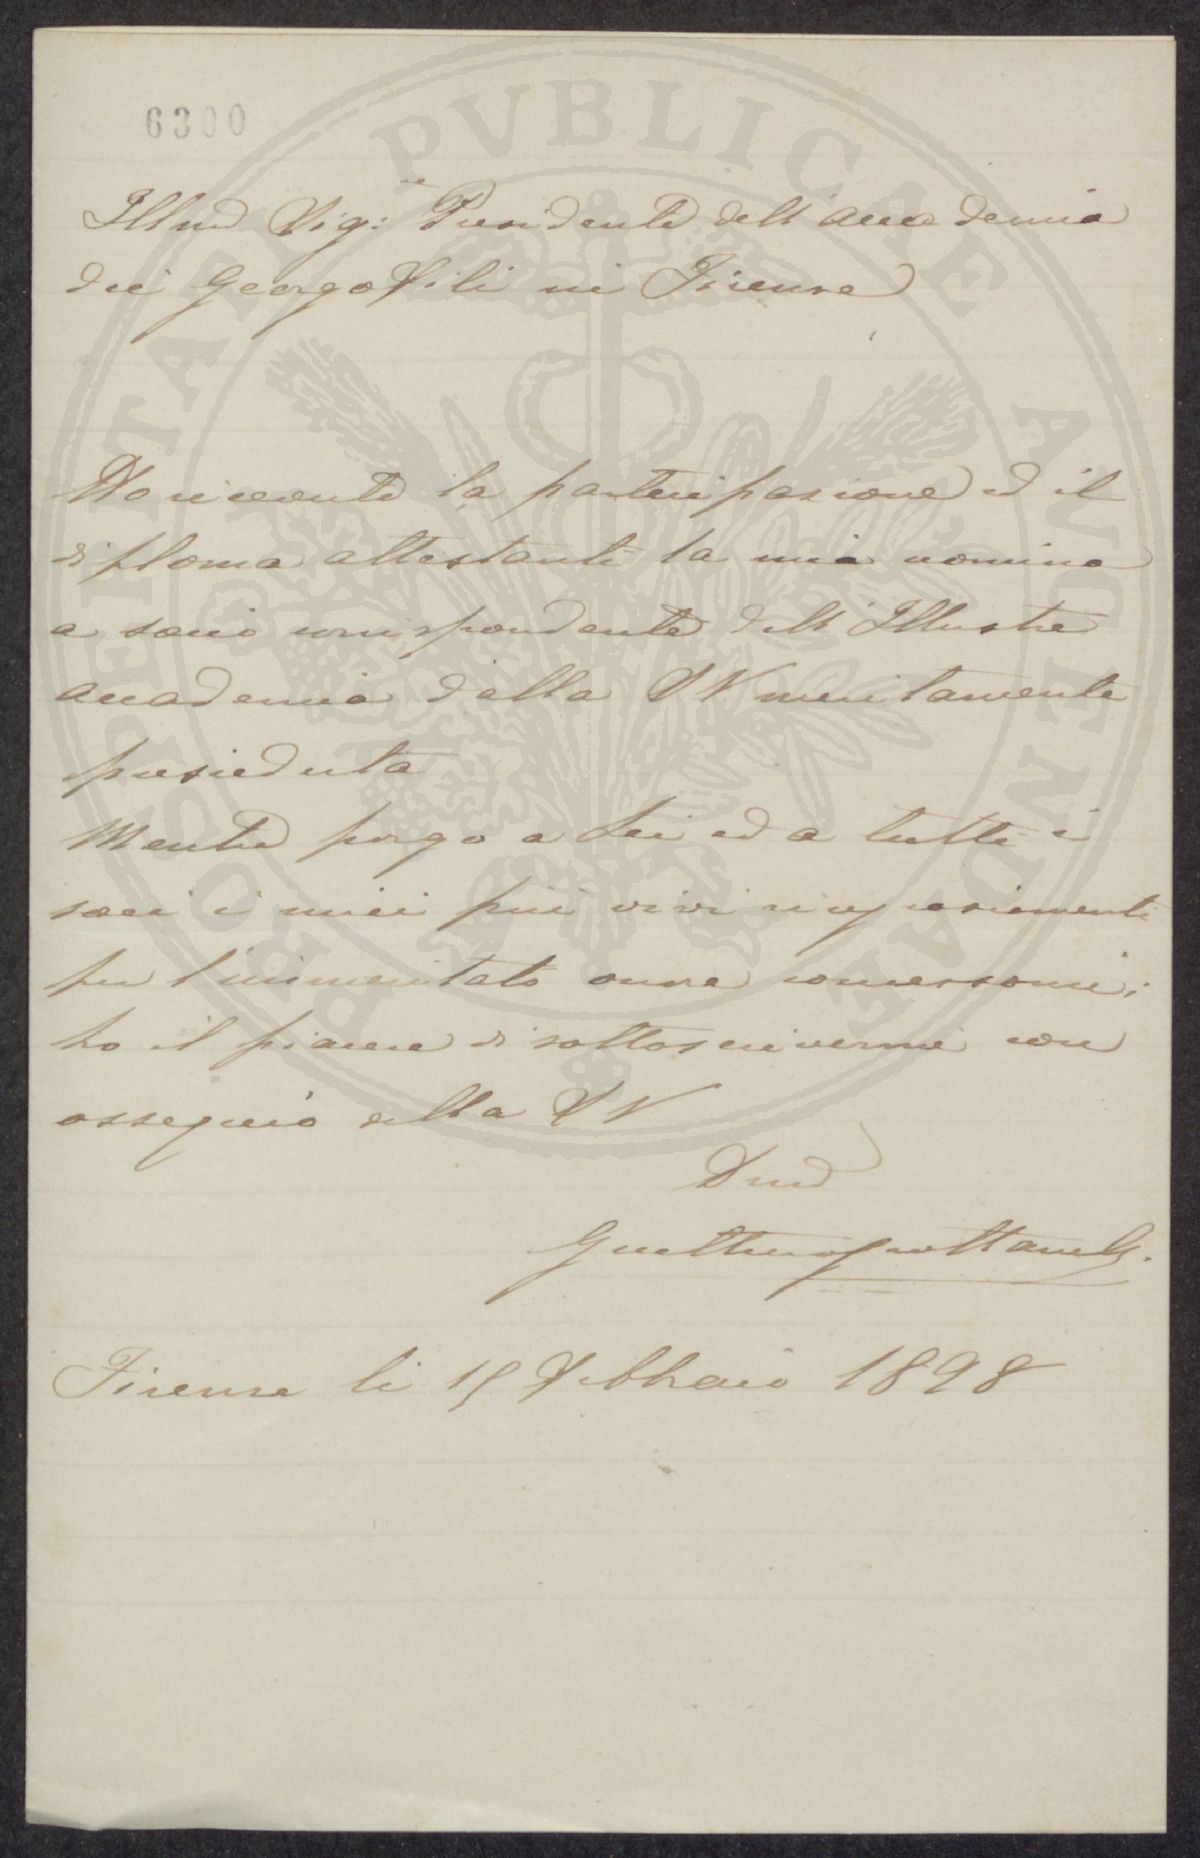 6300
PROSPERITATI PVBLICAE AVGENDAE
Illmo Sigr: Presidente dell'Accademia
dei Georgofili in Firenze
Ho ricevuto la partecipazione ed il
diploma attestante la mia nomina
a socio corrispondente dell'Illustre
accademia dalla S V meritamente
presieduta
Mentre porgo a Lei ed a tutti i
soci i miei più vivi ringraziamenti
per l'immeritato onore concessomi;
ho il piacere di sottoscrivermi con
ossequio della S V
Dmo
Firenze li 15 Febbraio 1898